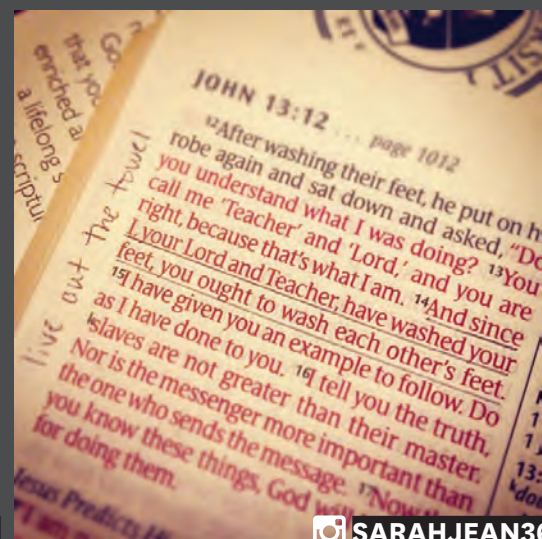 that you
enriched a
a lifelong s
scriptu
SIT
JOHN 13:12 ... page 1012
12After washing their feet, he put on h
robe again and sat down and asked, "Do
you understand what I was doing? 13You
call me 'Teacher' and 'Lord,' and you are
right, because that's what I am. 14And since
I, your Lord and Teacher, have washed your
feet, you ought to wash each other's feet.
15I have given you an example to follow. Do
as I have done to you. 16I tell you the truth,
slaves are not greater than their master.
Nor is the messenger more important than
the one who sends the message. 17Now
you know these things, God
for doing them.
live out the towel
Jesus Predicts
I am
13:
SARAHJEAN36